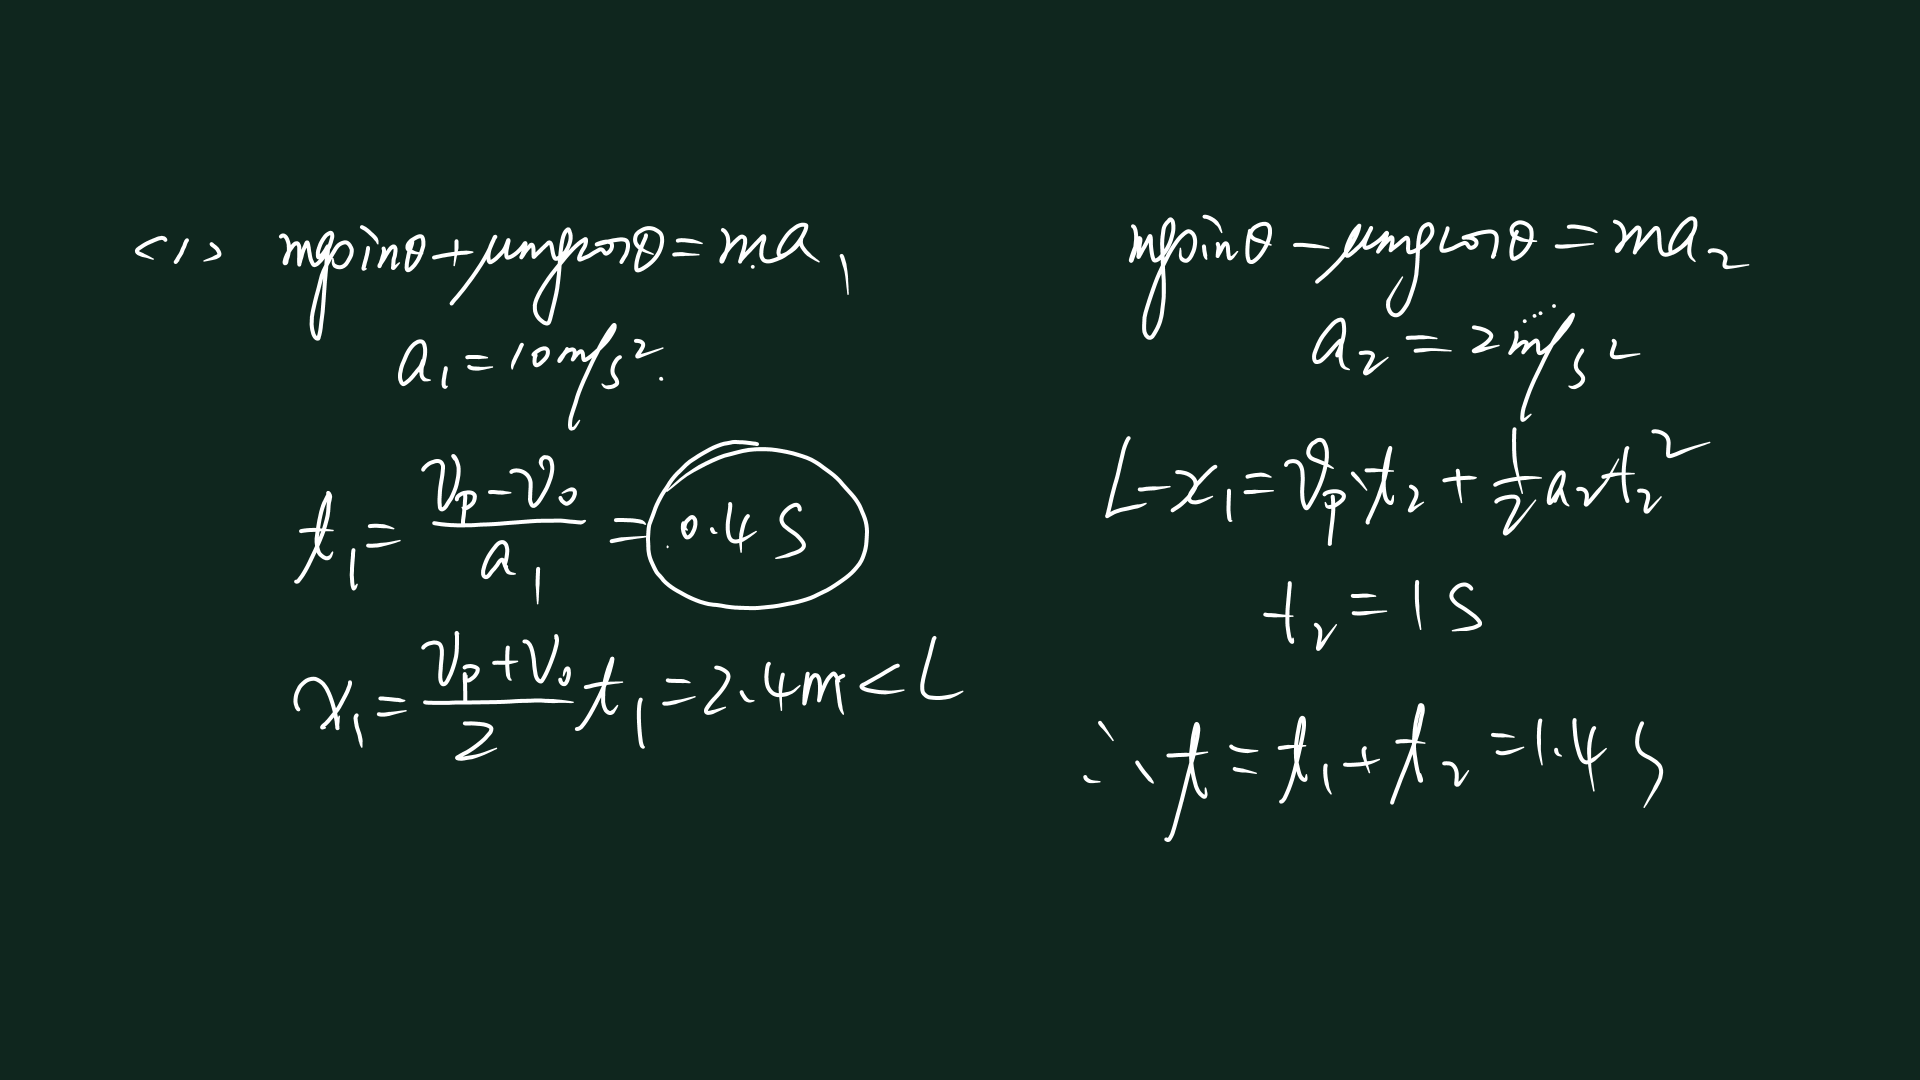 <1> mgsinθ+μmgcosθ=ma₁
a₁=10m/s².
t₁=(v_P-v₀)/a₁=0.4S
x₁=(v_P+v₀)/2 t₁=2.4m<L
mgsinθ-μmgcosθ=ma₂
a₂=2m/s²
L-x₁=v_P·t₂+½a₂t₂²
t₂=1S
∴t=t₁+t₂=1.4S